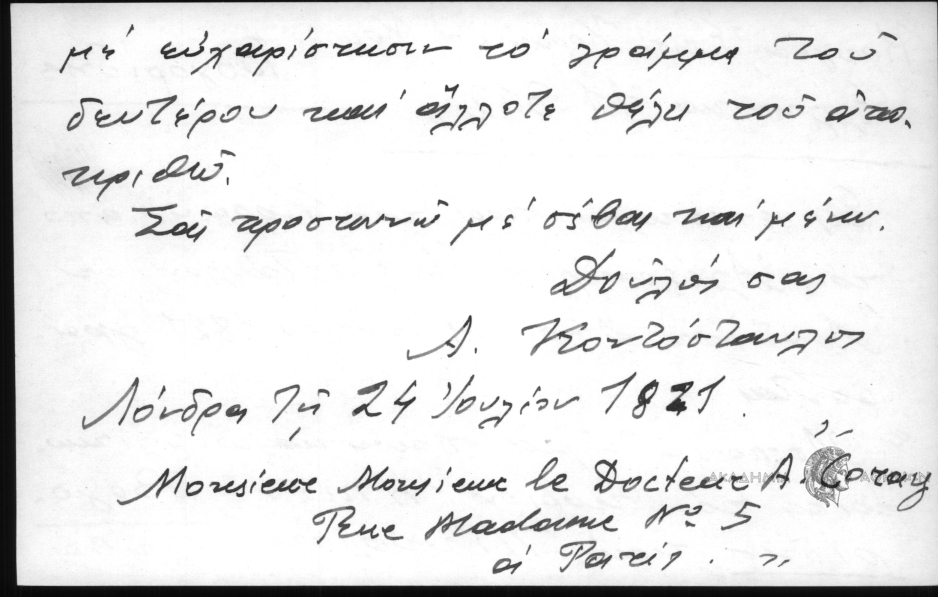 μέ εὐχαρίστησιν τό γράμμα τοῦ
δευτέρου καί ἄλλοτε θέλω τοῦ ἀπο-
κριθῶ.
Σᾶς προσκυνῶ μέ σέβας καί μένω.
Δοῦλός σας
Α. Κοντόσταυλος
Λόνδρα τῇ 24 Ἰουλίου 1821.
Monsieur Monsieur le Docteur A. Coray
Rue Madame No 5
à Paris. "
ΑΚΑΔΗΜΙΑ ΑΘΗΝΩΝ